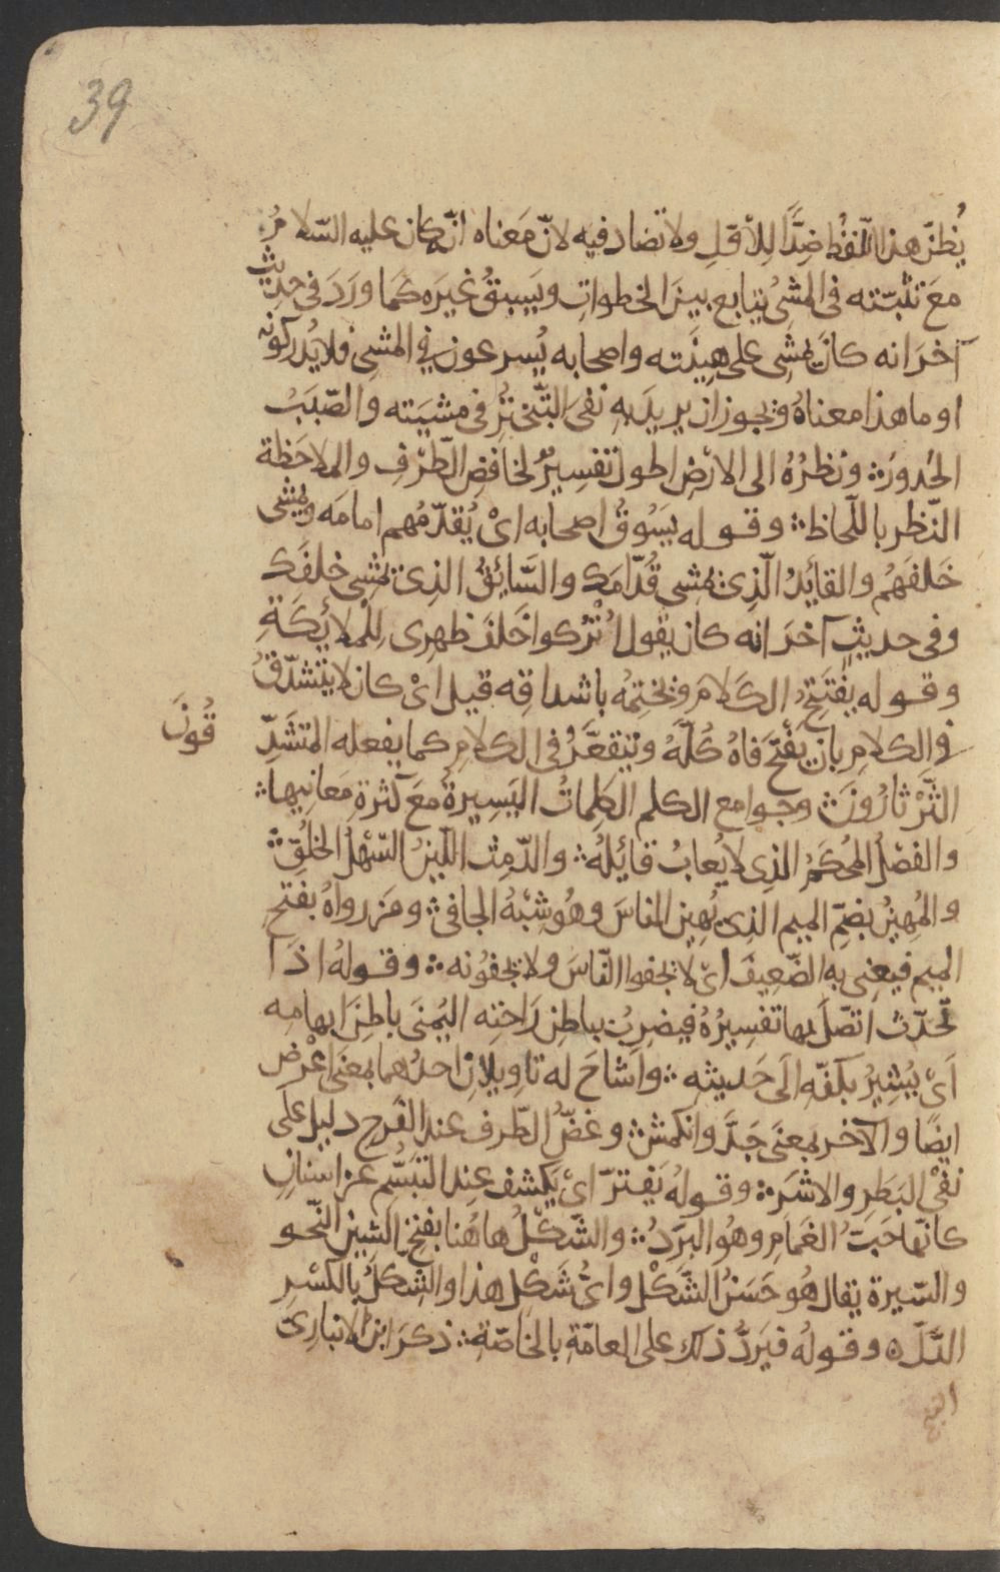 39
يُظنّ هذا اللّفظ ضِدًّا لِلأوّل ولا تضاد فيه لانّ مَعناه انّه كان عليه السّلامُ
مَعَ تثبّته فى المشىِ يتابع بينَ الخطواتِ ويَسبقُ غيرَه كمَا ورَدَ فى حديثٍ
آخرَ انه كانَ يمشِى على هِينَته واصحابه يُسرعون فى المشىِ فلا يُدركونه
او ما هذا معناهُ ويجوز ان يريدَ به نفى التّبخترُ فى مشيَته والصّبَبُ
الحُدورُ ؞ ونظرُهُ الى الارْضِ اطول تفسِيرٌ لخافضِ الطّرْفِ والملاحَظة
النّظر باللّحاظ ؞ وقوله يَسُوقُ اصحابه اىْ يُقدّمُهم امامَه ويمشى
خَلفَهُم والقائدُ الّذِى يمشى قُدّامَك والسَّائِقُ الذِى يمشِى خلفَك
وفى حديثٍ آخرَ انه كان يقول اُتْرُكوا خَلفَ ظهرِى لِلْملائِكَةِ
وقوله يفتَتِحُ الكَلامَ ويختِمُه باشداقِه قيل اىْ كان لا يتشدّقُ
فى الكلامِ بان يَفْتحَ فَاهُ كُلّهُ ويتقعَّرُ فى الكلامِ كما يفعله المتشَدِّ
قُونَ
الثّرْثارُونَ ؞ وجوامع الكلم الكلِماتُ اليَسِيرةُ معَ كثرةِ مَعانيها ؞
والفصْلُ المُحْكَمُ الذِى لا يُعابُ قائِلُهُ ؞ والدّمِثُ اللّيّنُ السّهلُ الخلُقِ ؞
والمُهِينُ بضمِّ الميم الذِى يُهين الناسَ وهُو شِبْهُ الجافى ؞ ومَن رواهُ بفَتحِ
الميم فيعنِى به الضّعِيفَ اىْ لا يجفوا النّاسَ ولا يجفوُنه ؞ وقولهُ اذَا
تحَدّث اتّصَلَ بها تفسِيرُهُ فيضرِبُ بباطِن رَاحَتِه اليُمنَى باطِنَ ابهامِه
اَىْ يُشِيرُ بكفّه الَى حَديثِه ؞ واَشَاحَ له تاوِيلانِ احدُهما بمعنَى اعْرضَ
ايضًا والآخر بمعنَى جَدَّ وانكمشَ ؞ وغَضُّ الطّرف عند الفرح دليل على
نفْىِ البَطَرِ والاشَر ؞ وقولهُ يَفترّ اىْ يكشف عِند التبَسُّم عن اسنانٍ
كانّها حَبّ الغَمَامِ وهُو البرَدُ ؞ والشّكْلُ هاهُنا بفتحِ الشينِ النّحو
والسّيرة يقال هُو حَسَنُ الشَّكْلِ واىُّ شَكْل هذا والشِكلُ بالكسْرِ
الدّلّ ؞ وقولُه فيَرُدُّ ذلك على العامّةِ بالخاصّةِ ؞ ذكرَ ابن الانبارِى